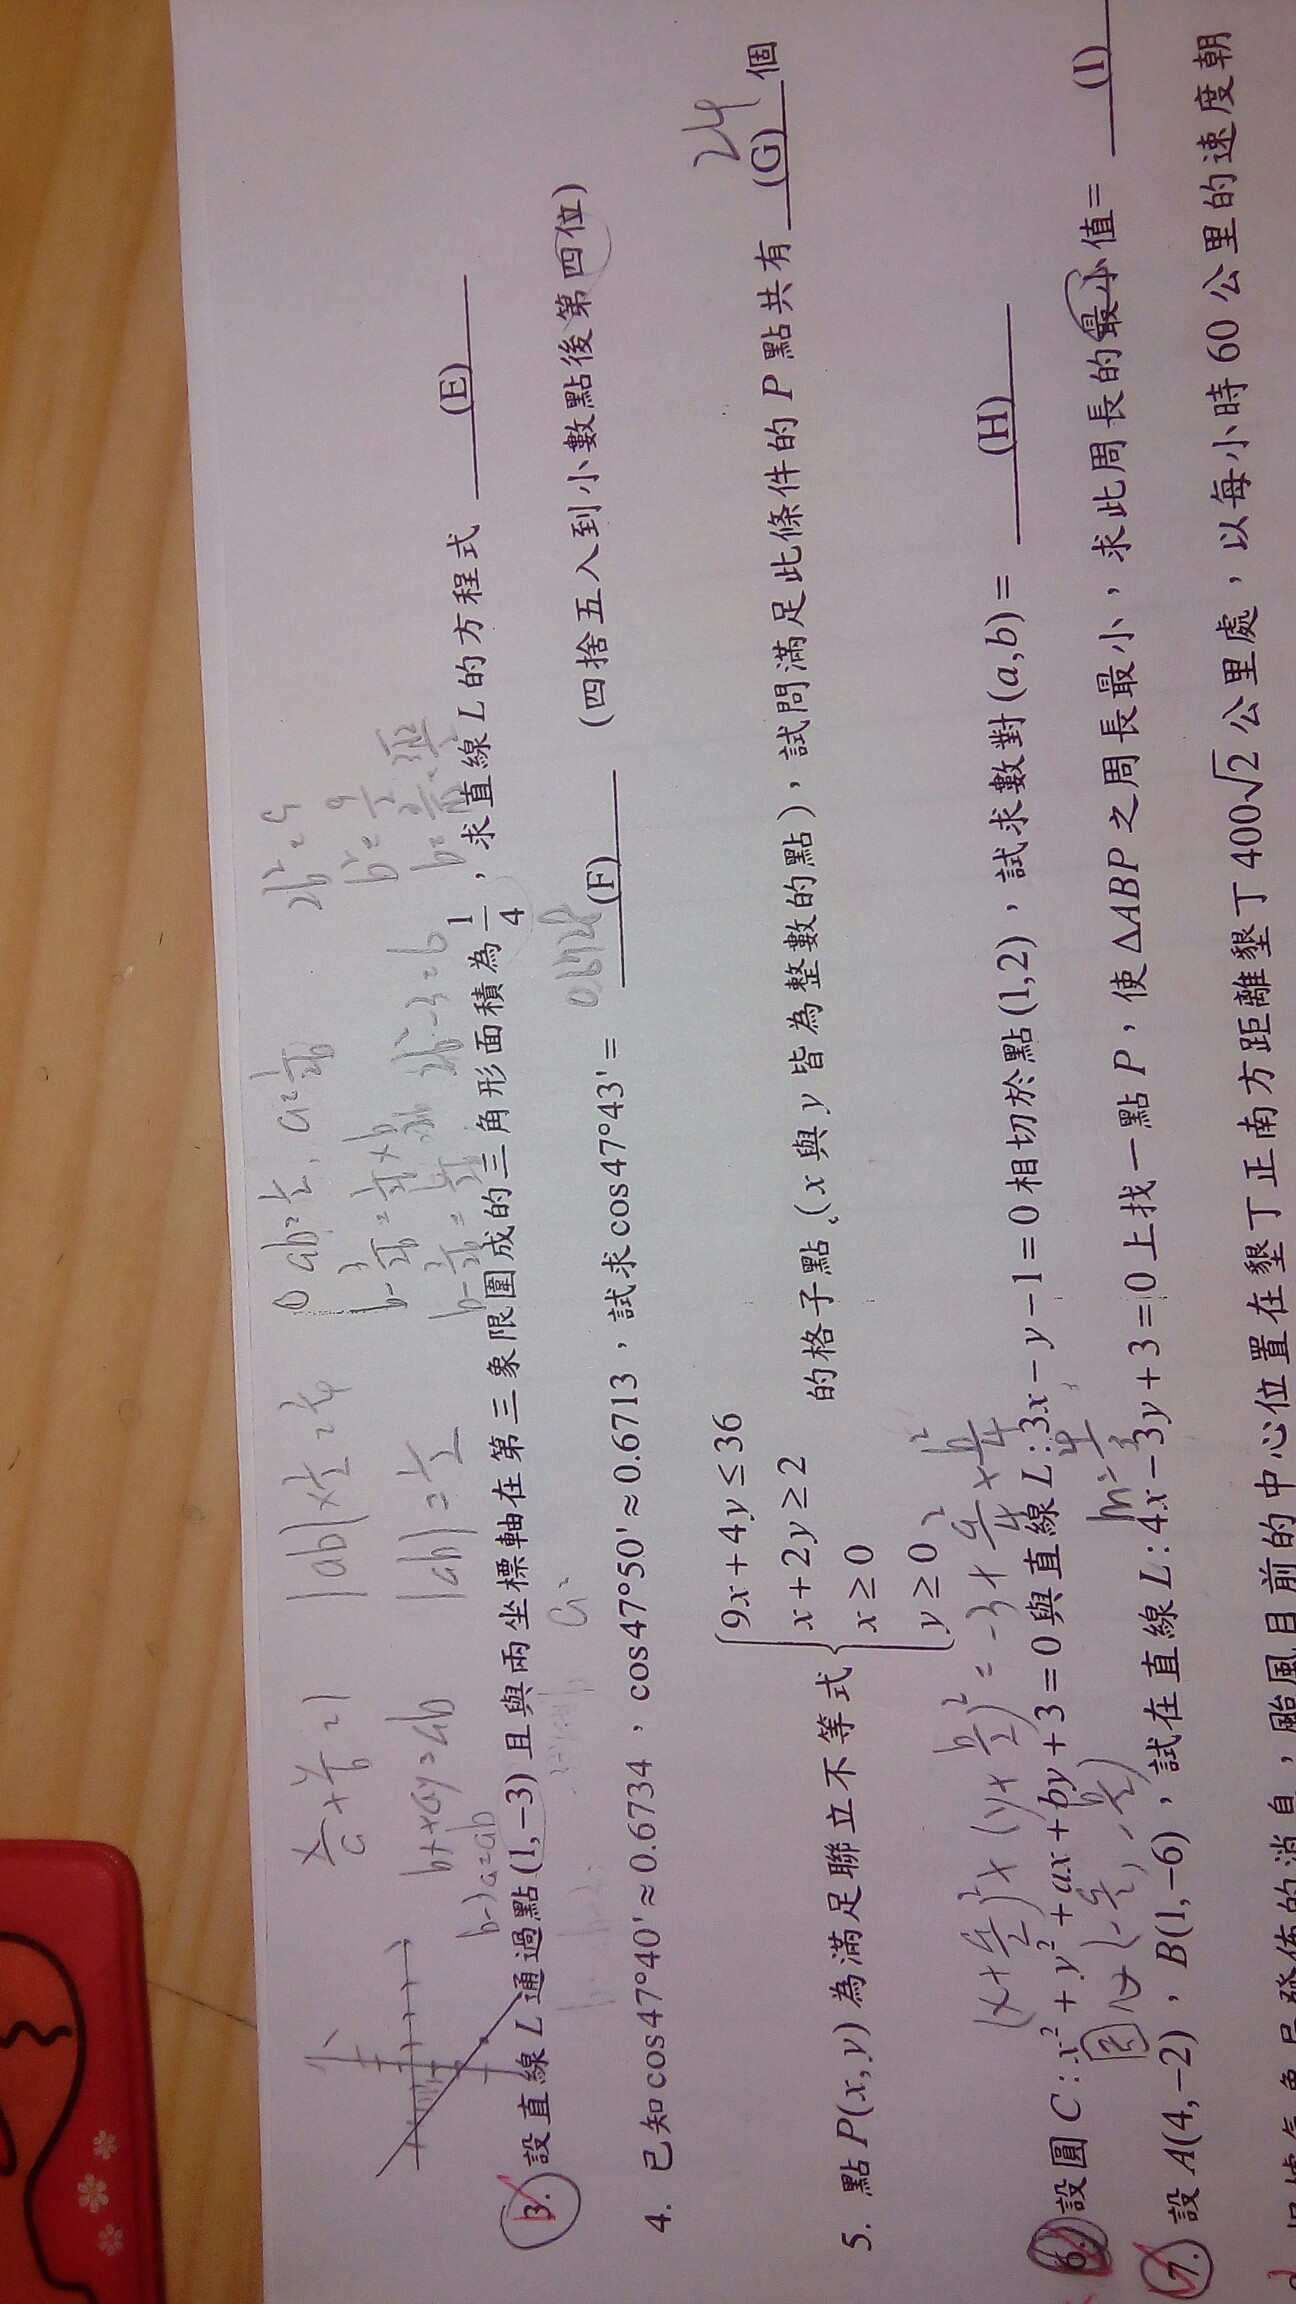 x/a + y/b = 1
|ab| × 1/2 = 1/4
① ab = 1/2, a = 1/2b
2b² = 9
bx + ay = ab
|ab| = 1/2
b - 3a = ab
3. 設直線 L 通過點 (1,−3) 且與兩坐標軸在第三象限圍成的三角形面積為 1/4，求直線 L 的方程式 (E)
4. 已知 cos47°40′ ≈ 0.6734，cos47°50′ ≈ 0.6713，試求 cos47°43′ = (F) (四捨五入到小數點後第四位)
0.6728
5. 點 P(x,y) 為滿足聯立不等式 { 9x+4y ≤ 36
x+2y ≥ 2
x ≥ 0
y ≥ 0
的格子點，(x 與 y 皆為整數的點)，試問滿足此條件的 P 點共有 (G) 個
24
(x + a/2)² + (y + b/2)² = -3 + a²/4 + b²/4
6. 設圓 C : x² + y² + ax + by + 3 = 0 與直線 L : 3x − y − 1 = 0 相切於點 (1,2)，試求數對 (a,b) = (H)
圓心 (-a/2, -b/2)
7. 設 A(4,−2)，B(1,−6)，試在直線 L : 4x − 3y + 3 = 0 上找一點 P，使 ΔABP 之周長最小，求此周長的最小值 = (I)
颱風目前的中心位置在墾丁正南方距離墾丁 400√2 公里處，以每小時 60 公里的速度朝